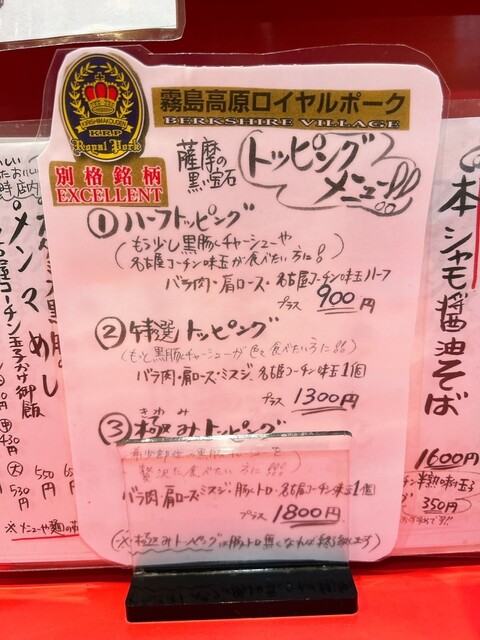 KIRISHIMAKOUGEN
KRP
Royal Pork
別格銘柄
EXCELLENT
霧島高原ロイヤルポーク
BERKSHIRE VILLAGE
薩摩の
黒い宝石
トッピング
メニュー!!
①ハーフトッピング
(もう少し黒豚チャーシューや
名古屋コーチン味玉が食べたい方に!)
バラ肉・肩ロース・名古屋コーチン味玉ハーフ
プラス 900円
②特選トッピング
(もっと黒豚チャーシューが色々食べたい方に!!)
バラ肉・肩ロース・ミスジ・名古屋コーチン味玉1個
プラス 1300円
きわ み
③極みトッピング
贅沢に食べたい方に!!!
バラ肉・肩ロース・ミスジ・豚トロ・名古屋コーチン味玉1個
プラス 1800円
(※極みトッピングは豚トロ無くなれば終了致します)
メンマめし
名古屋コーチン玉子かけ御飯
430円
大
530円
550
※メニューや麺の
本シャモ醤油そば
1600円
350円